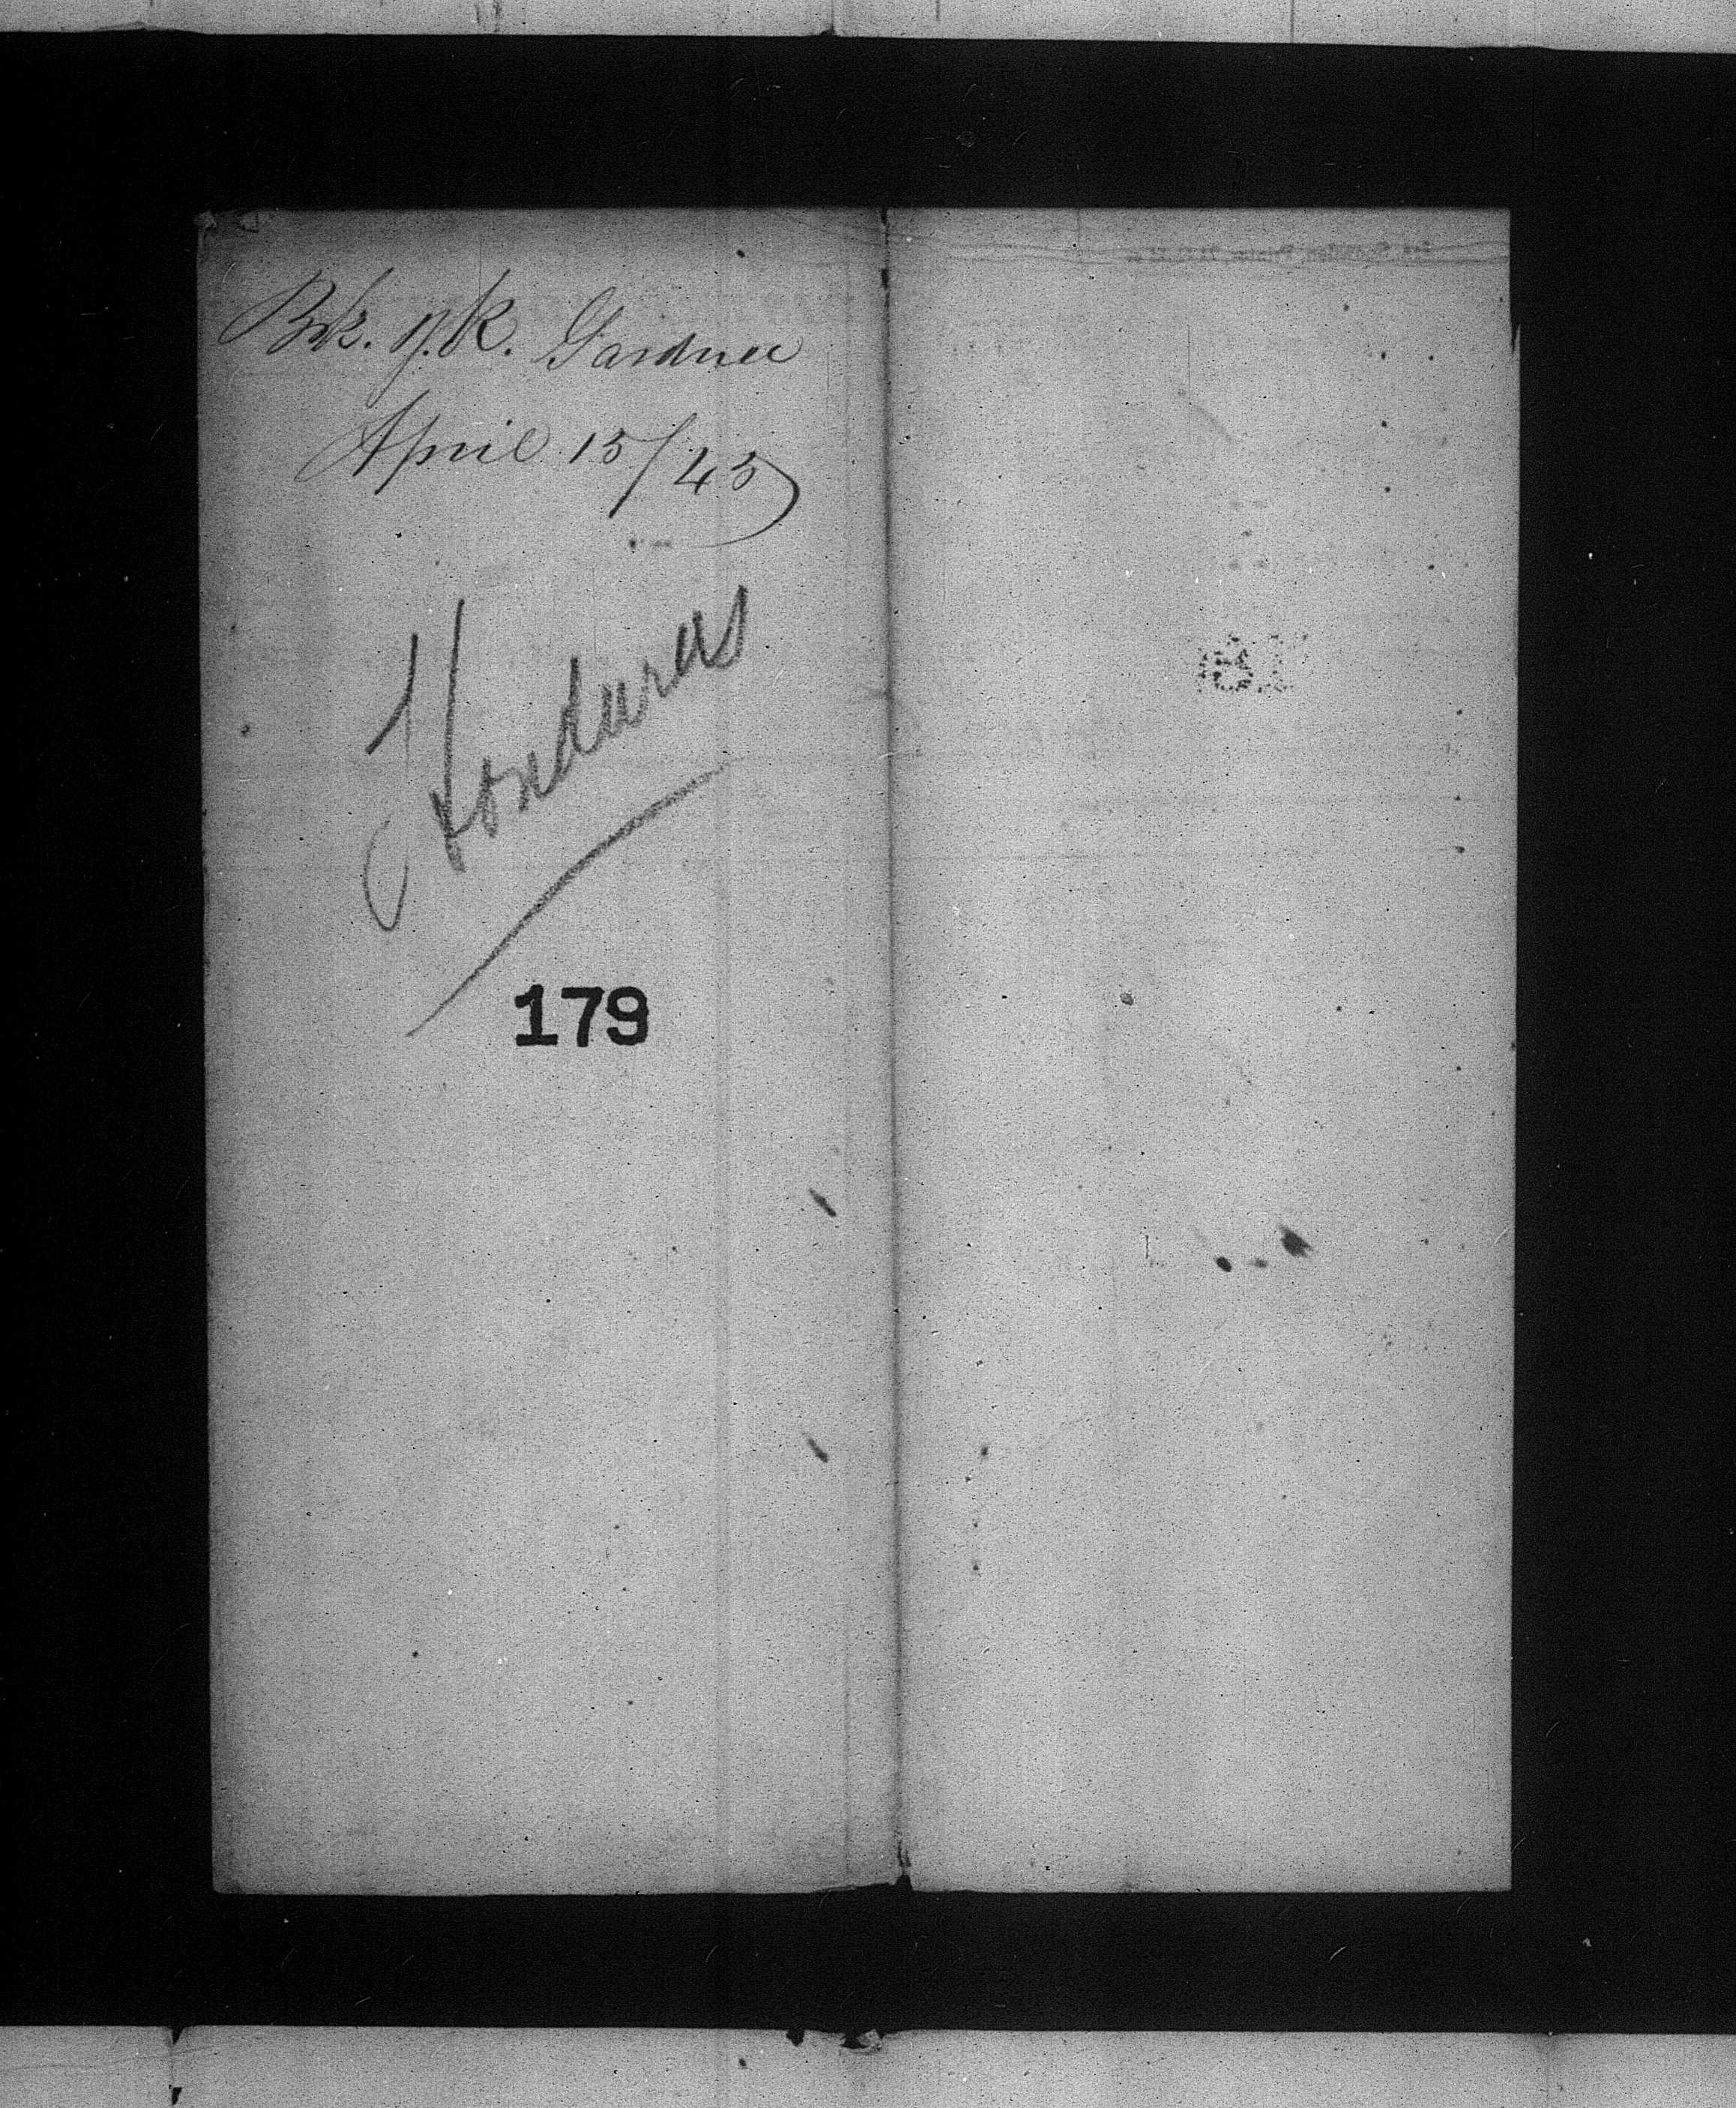 Brk. N.K. Gardner
April 15/45
Honduras
179